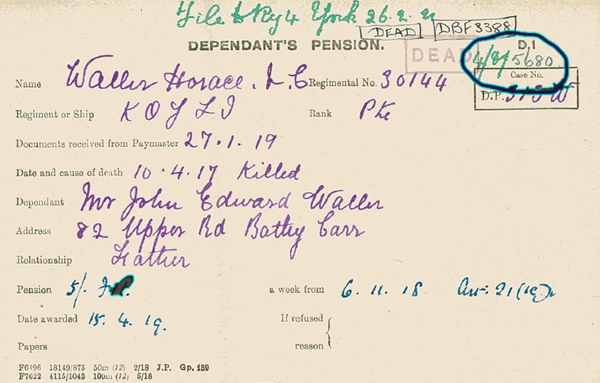 File to Ry 4 York 26.2.21
DEAD DBF 3388
DEPENDANT'S PENSION.
DEAD
D.1
4/8/5680
Case No.
D.P.
Name Waller Horace. V.C Regimental No. 30144
Regiment or Ship K O Y L I Rank Pte
Documents received from Paymaster 27.1.19
Date and cause of death 10.4.17 Killed
Dependant Mr John Edward Waller
Address 82 Upper Rd Batley Carr
Relationship Father
Pension 5/. a week from 6.11.18 Art. 21(1)
Date awarded 15.4.19. If refused
reason
Papers
F6496 18149/875 50m (12) 2/18 J.P. Gp. 159
F7622 4115/1043 100m (12) 5/18